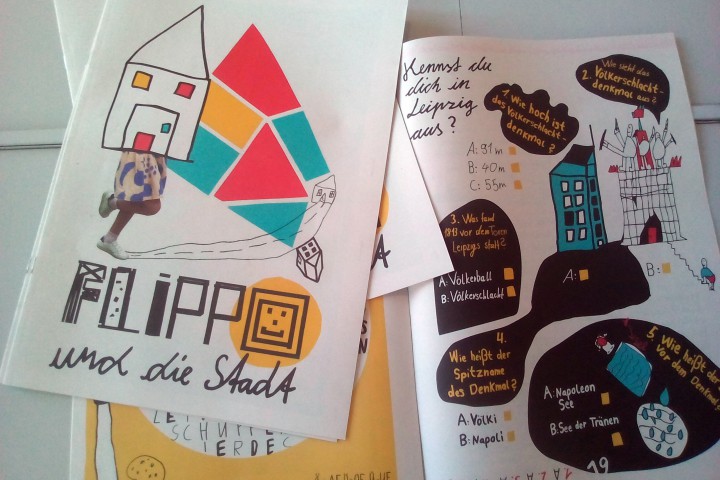 FLiPPO
und die Stadt
A
Kennst du
dich in
Leipzig
aus?
1. Wie hoch ist
das Völkerschlacht-
denkmal?
A: 91m
B: 40m
C: 55m
Wie sieht das
2. Völkerschlacht-
denkmal aus?
A:
B:
3. Was fand
1813 vor den Toren
Leipzigs statt?
A: Völkerball
B: Völkerschlacht
4.
Wie heißt der
Spitzname
des Denkmal?
A: Völki
B: Napoli
5. Wie heißt der
vor dem Denkmal
A: Napoleon
See
B: See der Tränen
19
SCHUFFE
ERDE